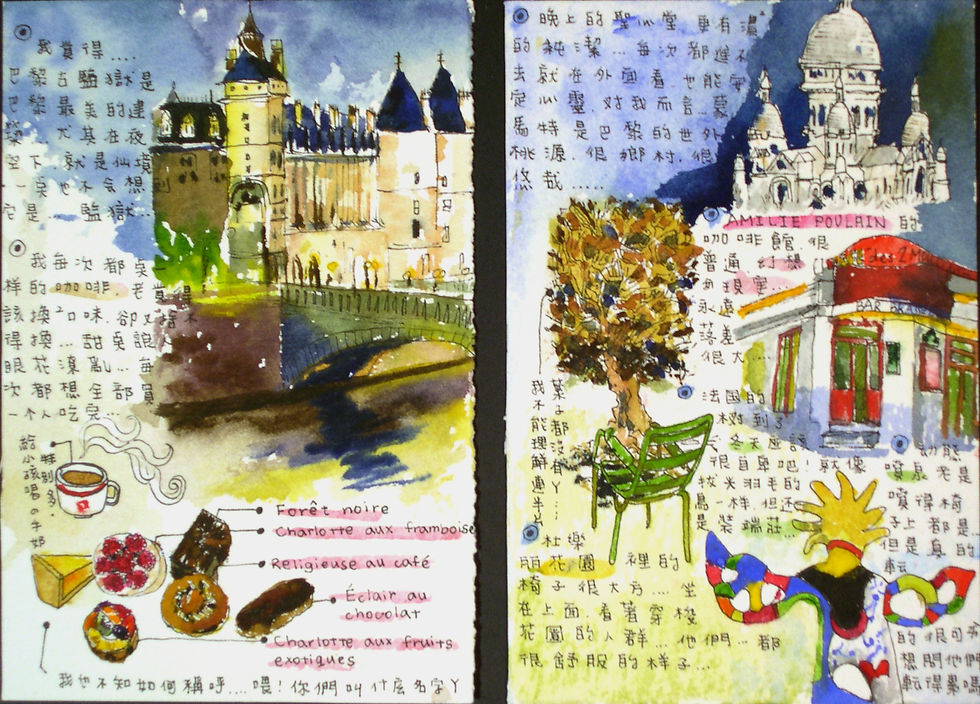 我覺得....
巴黎古監獄是
巴黎最美的建
築尤其在夜
空下,就是仙境
一點也不會想到
它是..監獄...
我每次都點一
樣的咖啡.老覺得
該換口味.卻又捨不
得換...甜點說人
眼花潦亂...每
次都想全部買
一個人吃完...
給小孩喝的牛奶
特別多.
Forêt noire
Charlotte aux framboise
Religieuse au café
Éclair au
chocolat
Charlotte aux fruits
exotiques
我也不知如何稱呼....喂!你們叫什麼名字ㄚ
晚上的聖心堂 更有濃
的純潔...每次都進不
去就在外面看.也能安
定心靈.對我而言...蒙
馬特是巴黎的世外
桃源.很鄉村.很
悠哉.....
AMILIE POULAIN 的
咖啡館很
普通 幻想
永遠
落差
很大....
BAR
法國的
樹到了
冬天應該
很自卑吧!就像
拔光羽毛的
鳥一樣.但還
是裝端莊...
葉子都沒有ㄚ...
我不能理解
杜樂
麗花園 裡的
椅子很大方...坐
在上面.看著穿梭
花園的人群...他們...都
很舒服的樣子...
噴泉老是
噴得椅
子上都是
但是真的
轉
的很可
想問他們
轉得累嗎